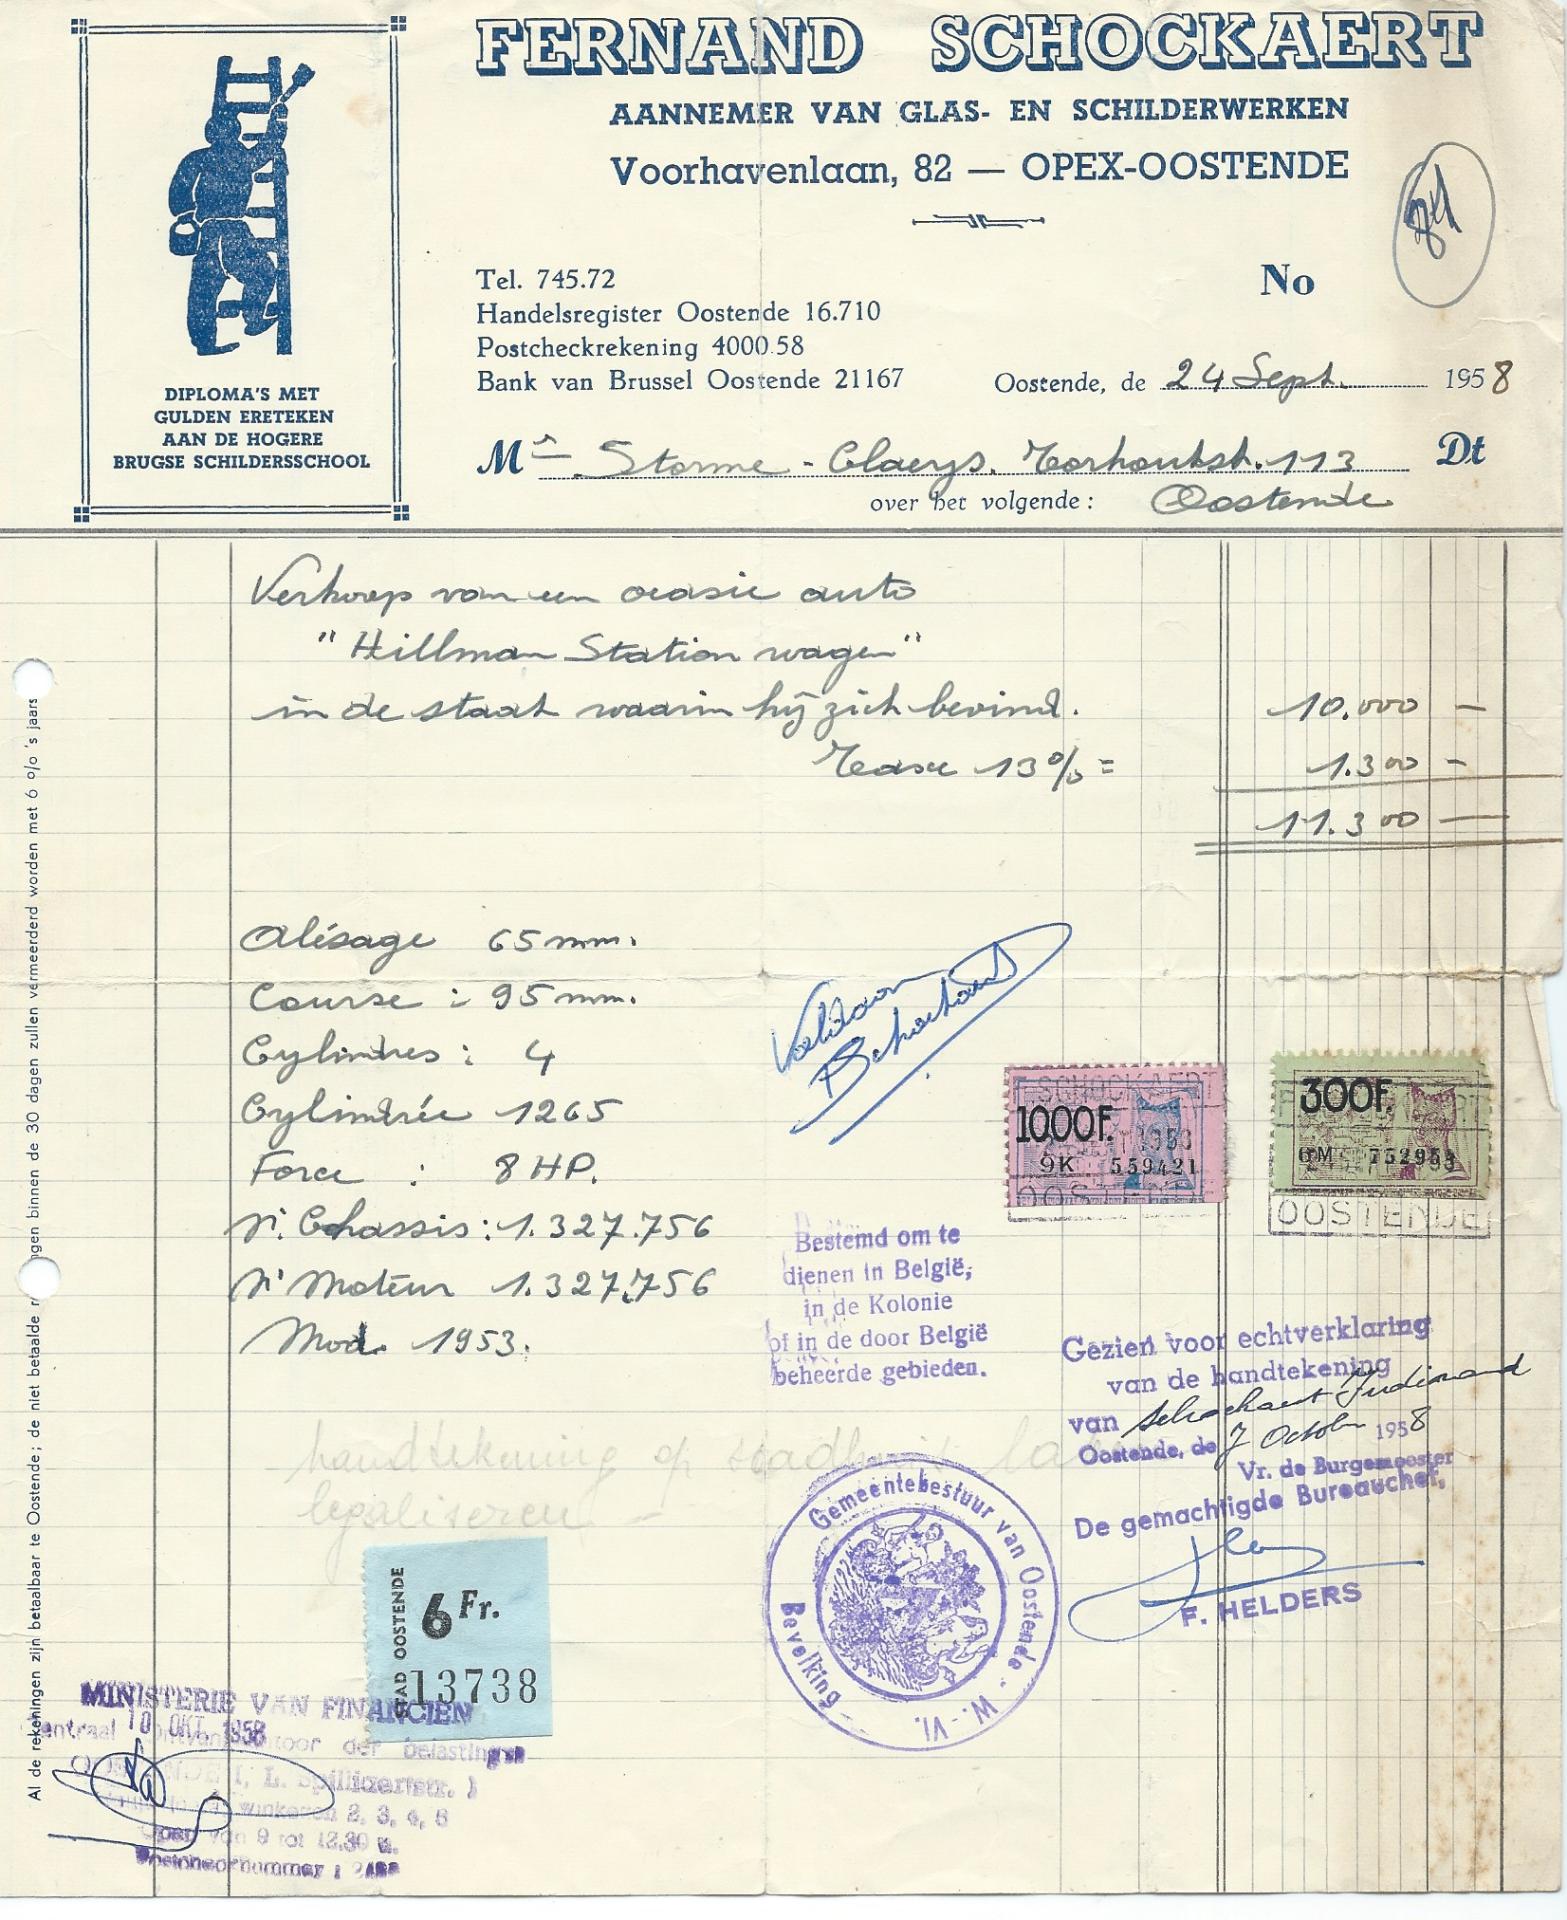 FERNAND SCHOCKAERT
AANNEMER VAN GLAS- EN SCHILDERWERKEN
Voorhavenlaan, 82 — OPEX-OOSTENDE
84
DIPLOMA'S MET
GULDEN ERETEKEN
AAN DE HOGERE
BRUGSE SCHILDERSSCHOOL
Tel. 745.72
No
Handelsregister Oostende 16.710
Postcheckrekening 4000.58
Bank van Brussel Oostende 21167
Oostende, de 24 Sept. 1958
Mr Storme - Claeys. Torhoutstr. 113 Dt
over het volgende : Oostende
Verkoop van een ocasie auto
"Hillman Station wagen"
in de staat waarin hij zich bevind. 10.000 —
Taxe 13% = 1.300 —
11.300 —
Alésage 65 mm.
Course : 95 mm.
Cylindres : 4
Cylindrée 1265
Force : 8 HP.
Nr. Chassis : 1.327.756
Nr Moteur 1.327.756
Mod. 1953.
Voldaan
Schockaert
F SCHOCKAERT
1000F.
9K 559421
OOSTENDE
300F.
6M 752954
OOSTENDE
Bestemd om te
dienen in België,
in de Kolonie
of in de door België
beheerde gebieden.
Gezien voor echtverklaring
van de handtekening
van Schockaert Ferdinand
Oostende, de 7 October 1958
Vr. de Burgemeester
De gemachtigde Bureauchef,
F. HELDERS
handtekening op stadhuis
legaliseren
Gemeentebestuur van Oostende - W.-Vl.
Bevolking
STAD OOSTENDE
6 Fr.
13738
MINISTERIE VAN FINANCIEN
10 OKT. 1958
Centraal Ontvangkantoor der belastingen
L. Spilliaertstr. )
winketten 2, 3, 4, 5
Open van 9 tot 12.30 u.
Al de rekeningen zijn betaalbaar te Oostende; de niet betaalde rekeningen binnen de 30 dagen zullen vermeerderd worden met 6 o/o 's jaars